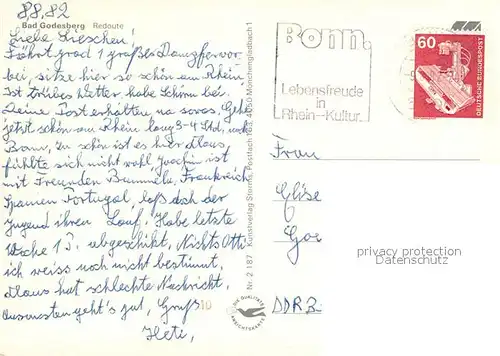 8.8.82
Bad Godesberg Redoute
Liebe Lieschen!
Fährt grad 1 großes Dampfer vor
bei, sitze hier so schön am Rhein
Ist trübes Wetter habe Schirm bei.
Deine Post erhalten na sowas, Geh
jetzt schön am Rhein lang 3-4 Std, nach
Bonn, Zu schön ist es hier Klaus
fühlte sich nicht wohl, Joachim ist
mit Freunden Bummeln, Frankreich
Spanien Portugal, laß doch der
Jugend ihren Lauf, Habe letzte
Woche 1 P. abgeschikt, Nichts Otti
ich weiss noch nicht bestimmt,
Klaus hat schlechte Nachricht,
Ansonsten geht's gut, Gruß
Heti,
Nr. 2 187 Kunstverlag Postfach 4050 Mönchengladbach 1
10
DIE QUALITÄTS
ANSICHTSKARTE
Bonn.
Lebensfreude
in
Rhein-Kultur.
60
DEUTSCHE BUNDESPOST
Frau
Elise
Goe
DDR 3
privacy protection
Datenschutz